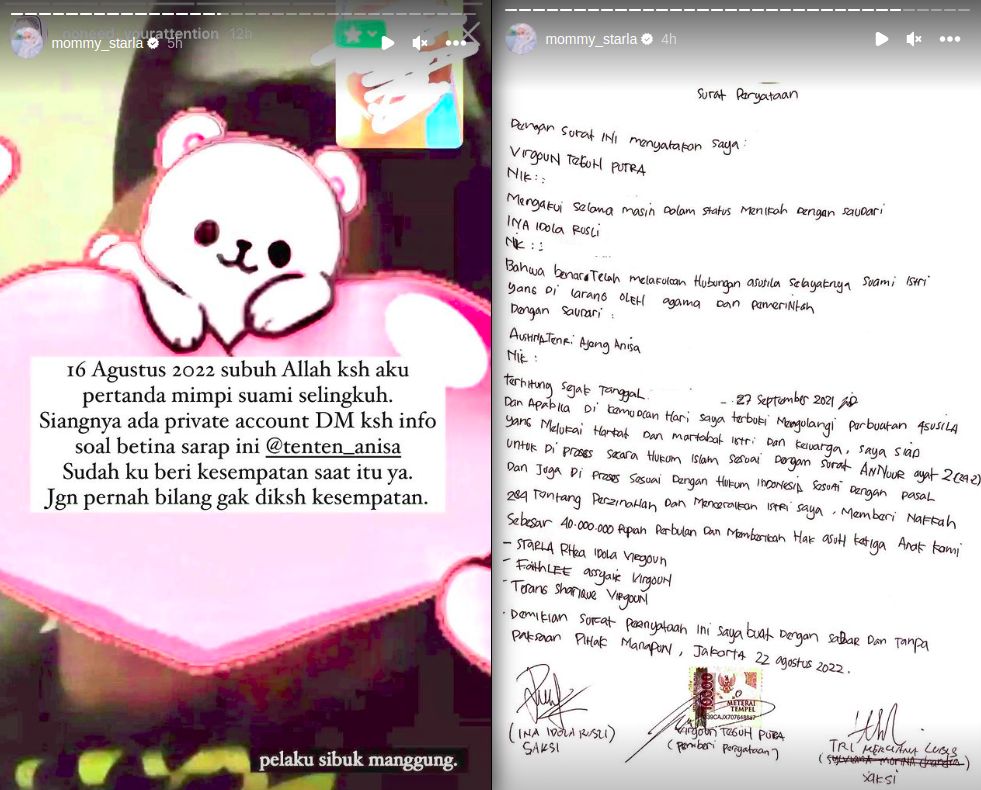 noneed_yourattention 12h
mommy_starla 5h
16 Agustus 2022 subuh Allah ksh aku
pertanda mimpi suami selingkuh.
Siangnya ada private account DM ksh info
soal betina sarap ini @tenten_anisa
Sudah ku beri kesempatan saat itu ya.
Jgn pernah bilang gak diksh kesempatan.
pelaku sibuk manggung.
mommy_starla 4h
Surat Peryataan
Dengan Surat INI menyatakan saya :
VIRGOUN TEGUH PUTRA
NIK : :
Mengakui Selama masih Dalam Status Menikah Dengan saudari
INA IDOLA RUSLI
NIK : :
Bahwa benar Telah melakukan Hubungan asusila Selayaknya Suami Istri
yang Di larang OLEH agama Dan pemerintah
Dengan Saudari :
Tenri Ajeng Anisa
NIK :
terhitung Sejak Tanggal 27 September 2021
Dan Apabila Di kemudian Hari saya terbukti Mengulangi Perbuatan ASUSILA
yang Melukai Harkat Dan martabat istri Dan Keluarga, saya siap
untuk Di Proses Secara Hukum Islam Sesuai Dengan Surat ANNUUR ayat 2
Dan Juga Di Proses Sesuai Dengan Hukum INDONESIA Sesuai Dengan Pasal
284 Tentang Perzinahan Dan Menceraikan Istri saya, Memberi Nafkah
Sebesar 40.000.000 Rupiah Perbulan Dan Memberikan Hak asuH ketiga Anak kami
- STARLA RHea IDOLA VIRGOUN
- FaithLEE VIRGOUN
- Terans Sharique VIRGOUN
. Demikian Surat Peernyataan Ini saya buat Dengan saBar Dan Tanpa
Paksaan PIHak ManaPUN, Jakarta 22 agustus 2022.
10000
METERAI
TEMPEL
(INA IDOLA RUSLI)
SAKSI
Virgoun TEGUH PUTRA
(Pemberi Peryataan)
TRI LUBIS
saksi